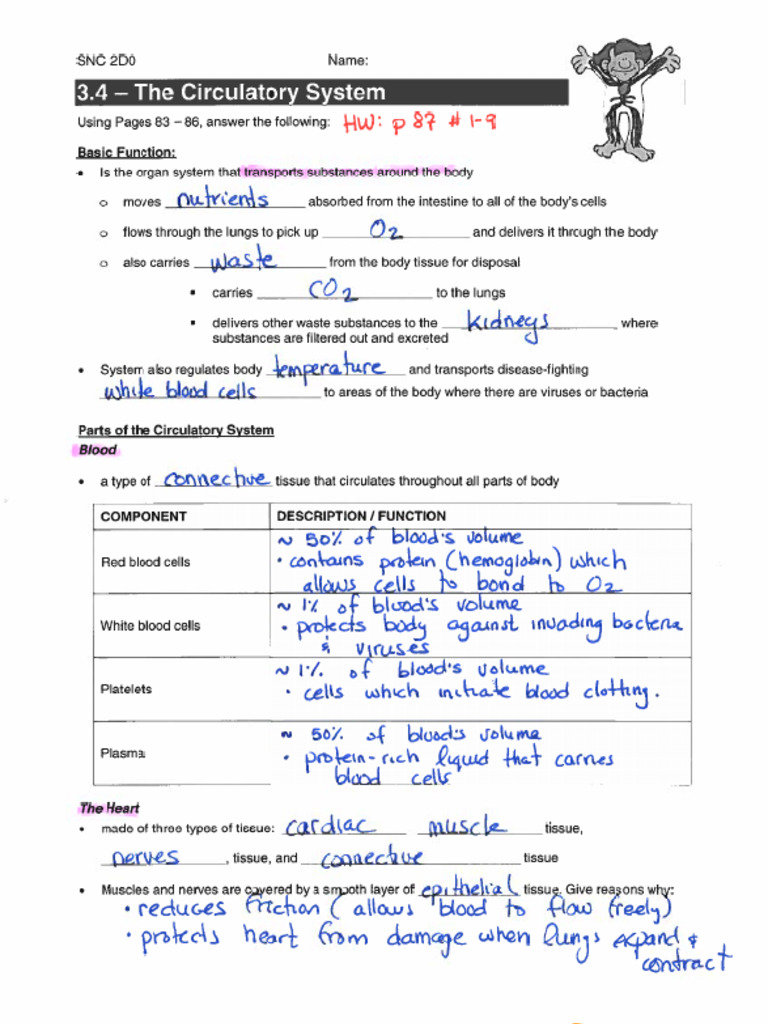 SNC 2D0 Name:
3.4 – The Circulatory System
Using Pages 83 – 86, answer the following: HW: p 87 # 1-9
Basic Function:
• Is the organ system that transports substances around the body
o moves nutrients absorbed from the intestine to all of the body's cells
o flows through the lungs to pick up O2 and delivers it through the body
o also carries waste from the body tissue for disposal
▪ carries CO2 to the lungs
▪ delivers other waste substances to the kidneys where
substances are filtered out and excreted
• System also regulates body temperature and transports disease-fighting
white blood cells to areas of the body where there are viruses or bacteria
Parts of the Circulatory System
Blood
• a type of connective tissue that circulates throughout all parts of body
COMPONENT DESCRIPTION / FUNCTION
~ 50% of blood's volume
Red blood cells • contains protein (hemoglobin) which
allows cells to bond to O2
~ 1% of blood's volume
White blood cells • protects body against invading bacteria
& viruses
~ 1% of blood's volume
Platelets • cells which initiate blood clotting.
~ 50% of blood's volume
Plasma • protein-rich liquid that carries
blood cells
The Heart
• made of three types of tissue: cardiac muscle tissue,
nerves, tissue, and connective tissue
• Muscles and nerves are covered by a smooth layer of epithelial tissue. Give reasons why:
• reduces friction (allows blood to flow freely)
• protects heart from damage when lungs expand &
contract